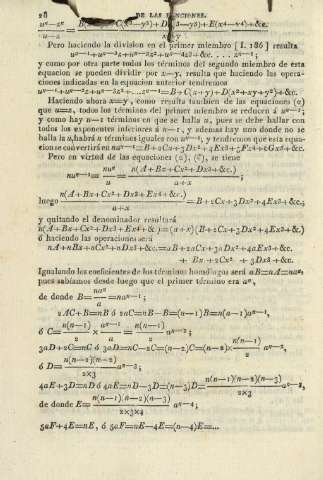 28 DE LAS FUNCIONES.
uⁿ—zⁿ = B(x—y)+C(x²—y²)+D(x³—y³)+E(x⁴—y⁴)+&c.
u—z x—y
Pero haciendo la division en el primer miembro [ I. 186 ] resulta
uⁿ⁻¹+uⁿ⁻²z+uⁿ⁻³z²+uⁿ⁻⁴z³+&c. . . . . zⁿ⁻¹ ;
y como por otra parte todos los términos del segundo miembro de esta
equacion se pueden dividir por x—y, resulta que haciendo las opera-
ciones indicadas en la equacion anterior tendremos
uⁿ⁻¹+uⁿ⁻²z+uⁿ⁻³z²+...zⁿ⁻¹=B+C(x+y)+D(x²+xy+y²)+&c.
Haciendo ahora x=y, como resulta tambien de las equaciones (α)
que u=z, todos los términos del primer miembro se reducen á uⁿ⁻¹ ;
y como hay n—1 términos en que se halla u, pues se debe hallar con
todos los exponentes inferiores á n—1, y ademas hay uno donde no se
halla u, habrá n términos iguales con uⁿ⁻¹, y tendremos que esta equa-
cion se convertirá en nuⁿ⁻¹=B+2Cx+3Dx²+4Ex³+5Fx⁴+6Gx⁵+&c.
Pero en virtud de las equaciones (α), (ϐ), se tiene
nuⁿ⁻¹= nuⁿ/u = n(A+Bx+Cx²+Dx³+&c.)/a+x ;
luego n(A+Bx+Cx²+Dx³+Ex⁴+&c.)/a+x =B+2Cx+3Dx²+4Ex³+&c.;
y quitando el denominador resultará
n(A+Bx+Cx²+Dx³+Ex⁴+&c.)=(a+x)(B+2Cx+3Dx²+4Ex³+&c.)
ó haciendo las operaciones será
nA+nBx+nCx²+nDx³+&c.=aB+2aCx+3aDx²+4aEx³+&c.
+ Bx +2Cx² + 3Dx³ +&c.
Igualando los coeficientes de los términos homólogos será aB=nA=naⁿ,
pues sabíamos desde luego que el primer término era aⁿ,
de donde B= naⁿ/a =naⁿ⁻¹ ;
2AC+B=nB ó 2aC=nB—B=(n—1)B=n(n—1)aⁿ⁻¹,
ó C= n(n—1)/2 × aⁿ⁻¹/a = n(n—1)/2 aⁿ⁻² ;
3aD+2C=nC ó 3aD=nC—2C=(n—2)C=(n—2)× n(n—1)/2 aⁿ⁻²,
ó D= n(n—1)(n—2)/2×3 aⁿ⁻³ ;
4aE+3D=nD ó 4aE=nD—3D=(n—3)D= n(n—1)(n—2)(n—3)/2×3 aⁿ⁻³,
de donde E= n(n—1)(n—2)(n—3)/2×3×4 aⁿ⁻⁴ ;
5aF+4E=nE, ó 5aF=nE—4E=(n—4)E=...